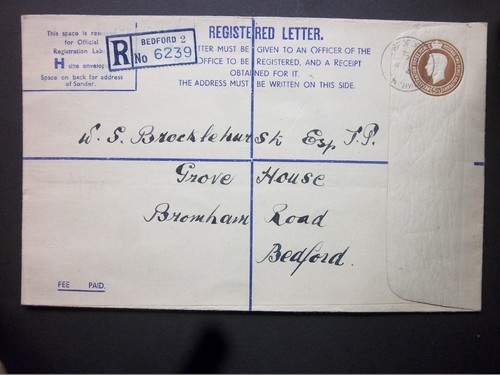 This space is res
for Official
Registration Lab
H size envelop
Space on back for address
of Sender.
R
BEDFORD 2
No 6239
REGISTERED LETTER.
ETTER MUST BE GIVEN TO AN OFFICER OF THE
OFFICE TO BE REGISTERED, AND A RECEIPT
OBTAINED FOR IT.
THE ADDRESS MUST BE WRITTEN ON THIS SIDE.
W. S. Brocklehurst Esq J.P.
Grove House
Bromham Road
Bedford.
FEE PAID.